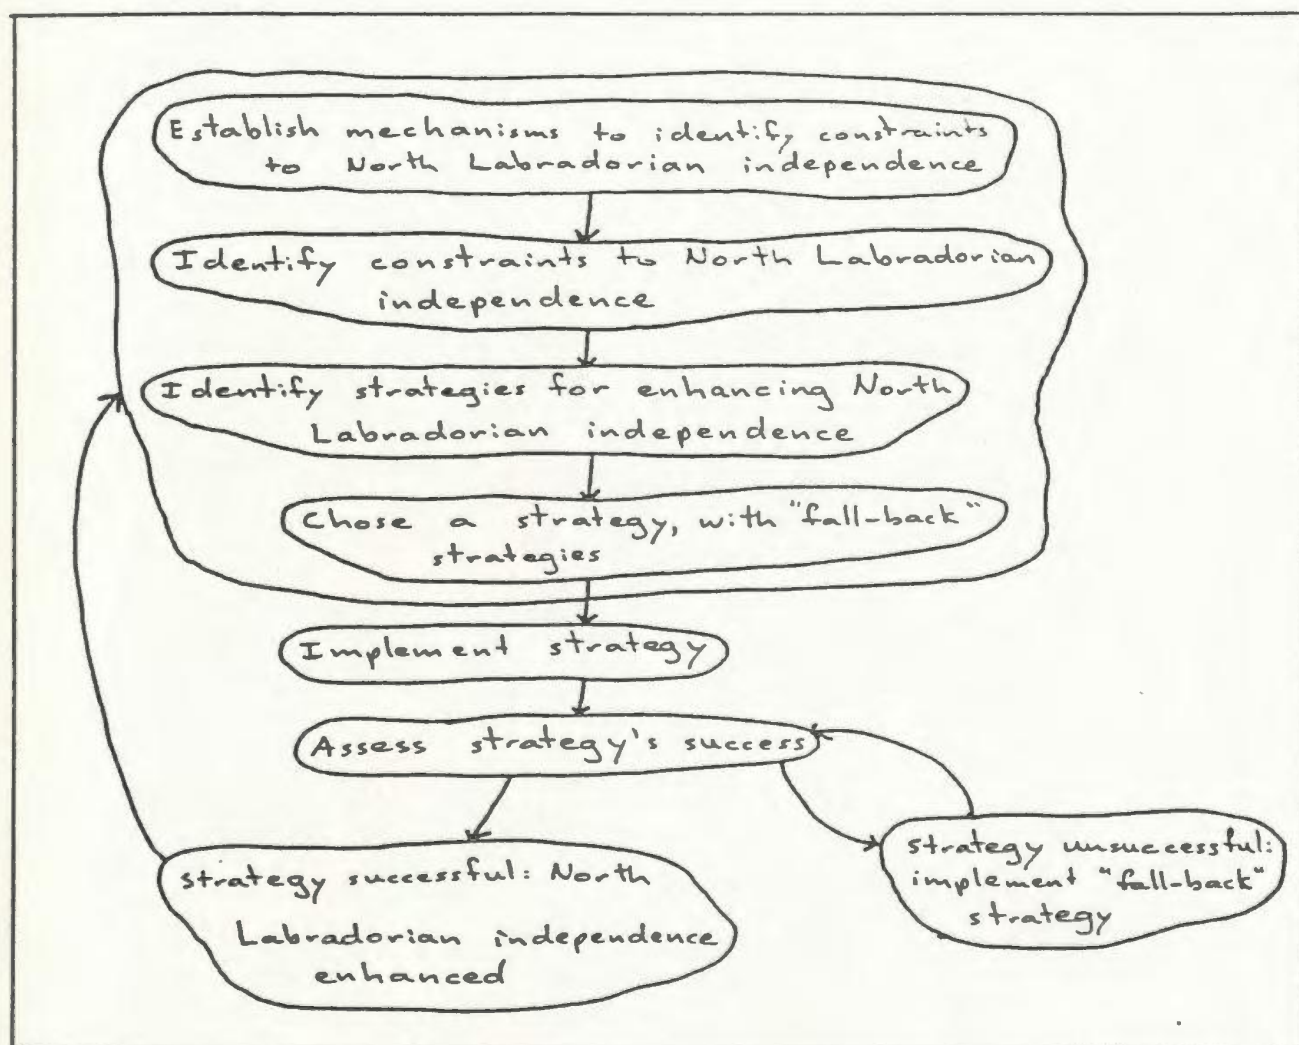 Establish mechanisms to identify constraints
to North Labradorian independence
Identify constraints to North Labradorian
independence
Identify strategies for enhancing North
Labradorian independence
Chose a strategy, with "fall-back"
strategies
Implement strategy
Assess strategy's success
strategy successful: North
Labradorian independence
enhanced
strategy unsuccessful:
implement "fall-back"
strategy